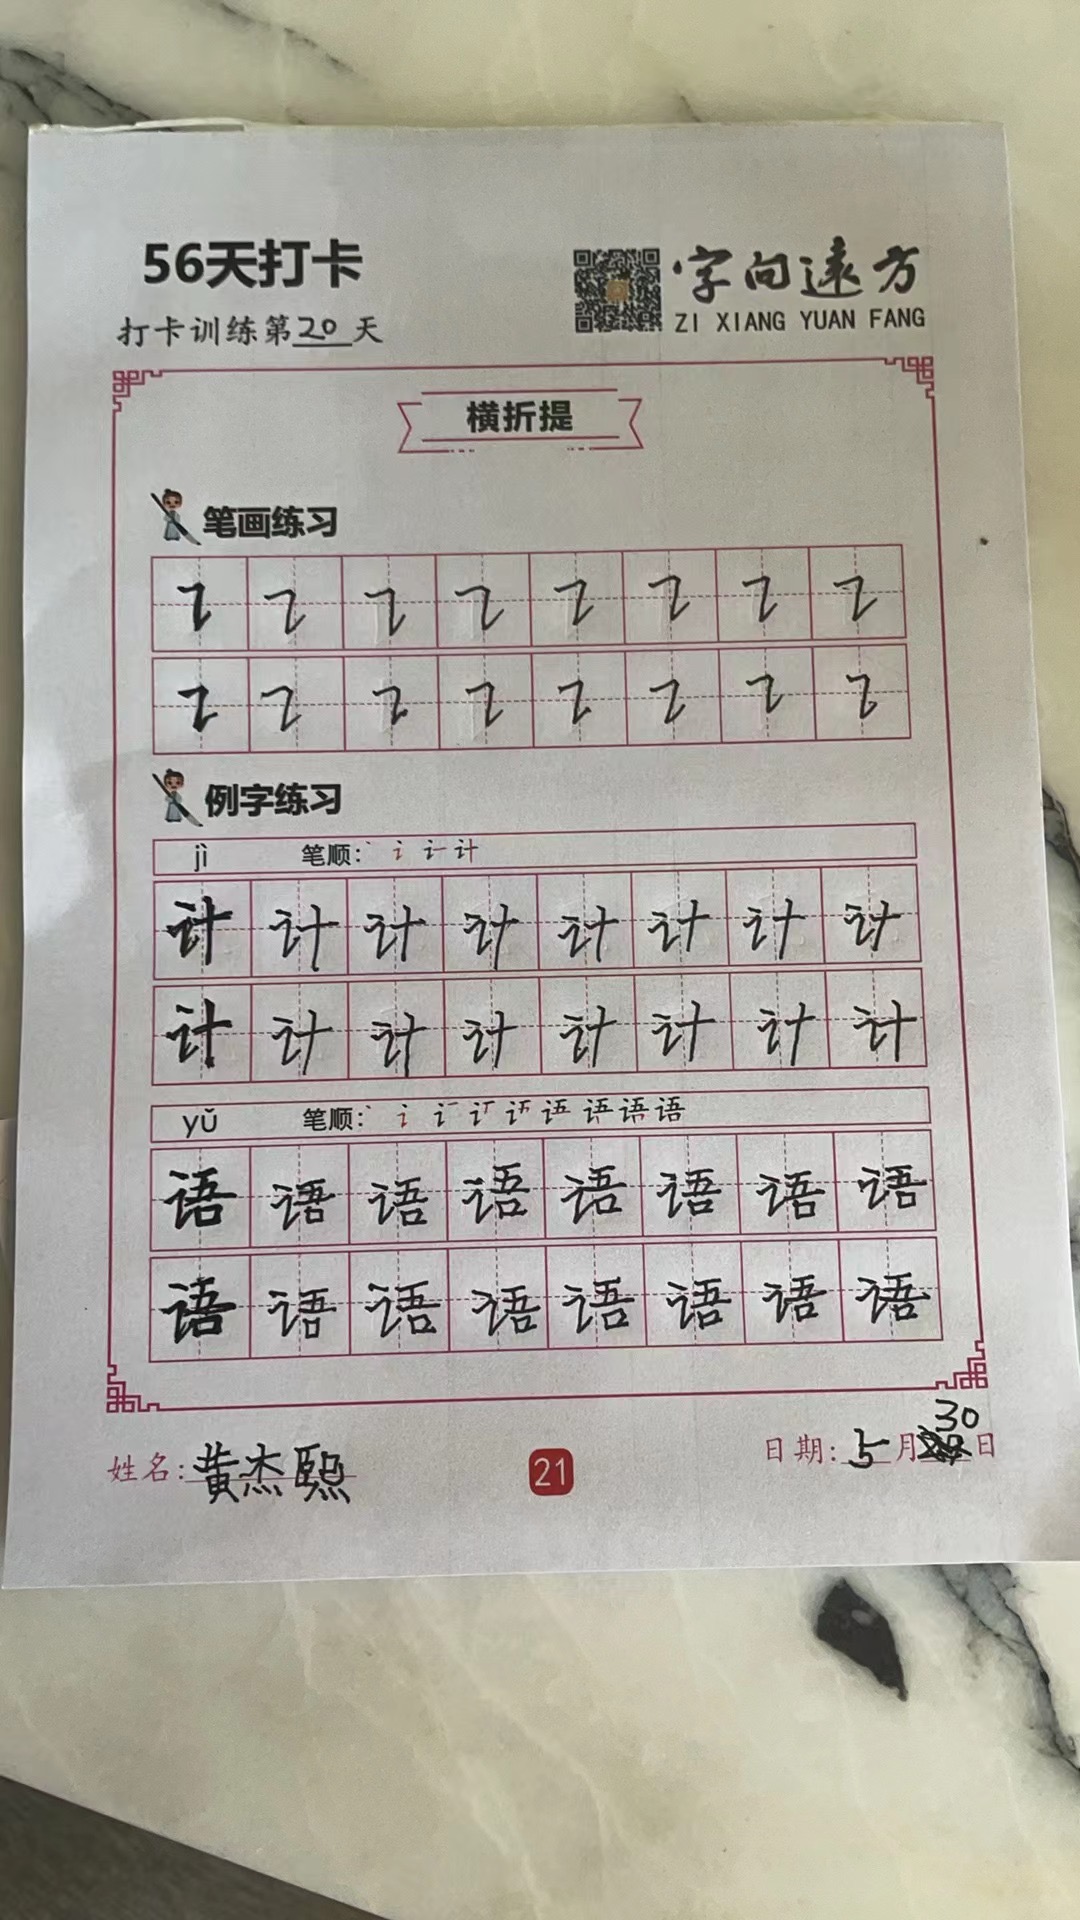 56天打卡
字向远方
ZI XIANG YUAN FANG
打卡训练第20天
横折提
笔画练习
例字练习
jì 笔顺:
计 计 计 计 计 计 计 计
计 计 计 计 计 计 计 计
yǔ 笔顺:
语 语 语 语 语 语 语 语
语 语 语 语 语 语 语 语
姓名:黄杰熙
21
日期:5月30日